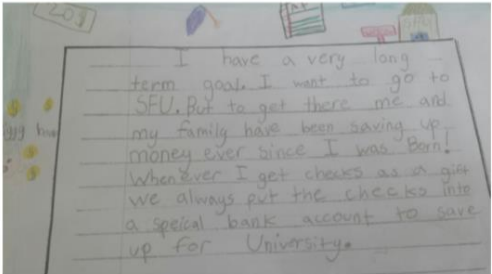 I have a very long
term goal. I want to go to
SFU. But to get there me and
my family have been saving up
money ever since I was Born!
Whenever I get checks as a gift
we always put the checks into
a speical bank account to save
up for University.